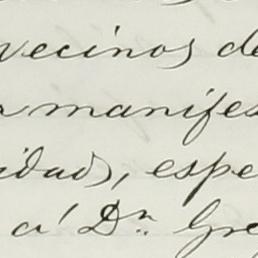 vecinos de
manifes
idad, espe
a' Dn. Gre